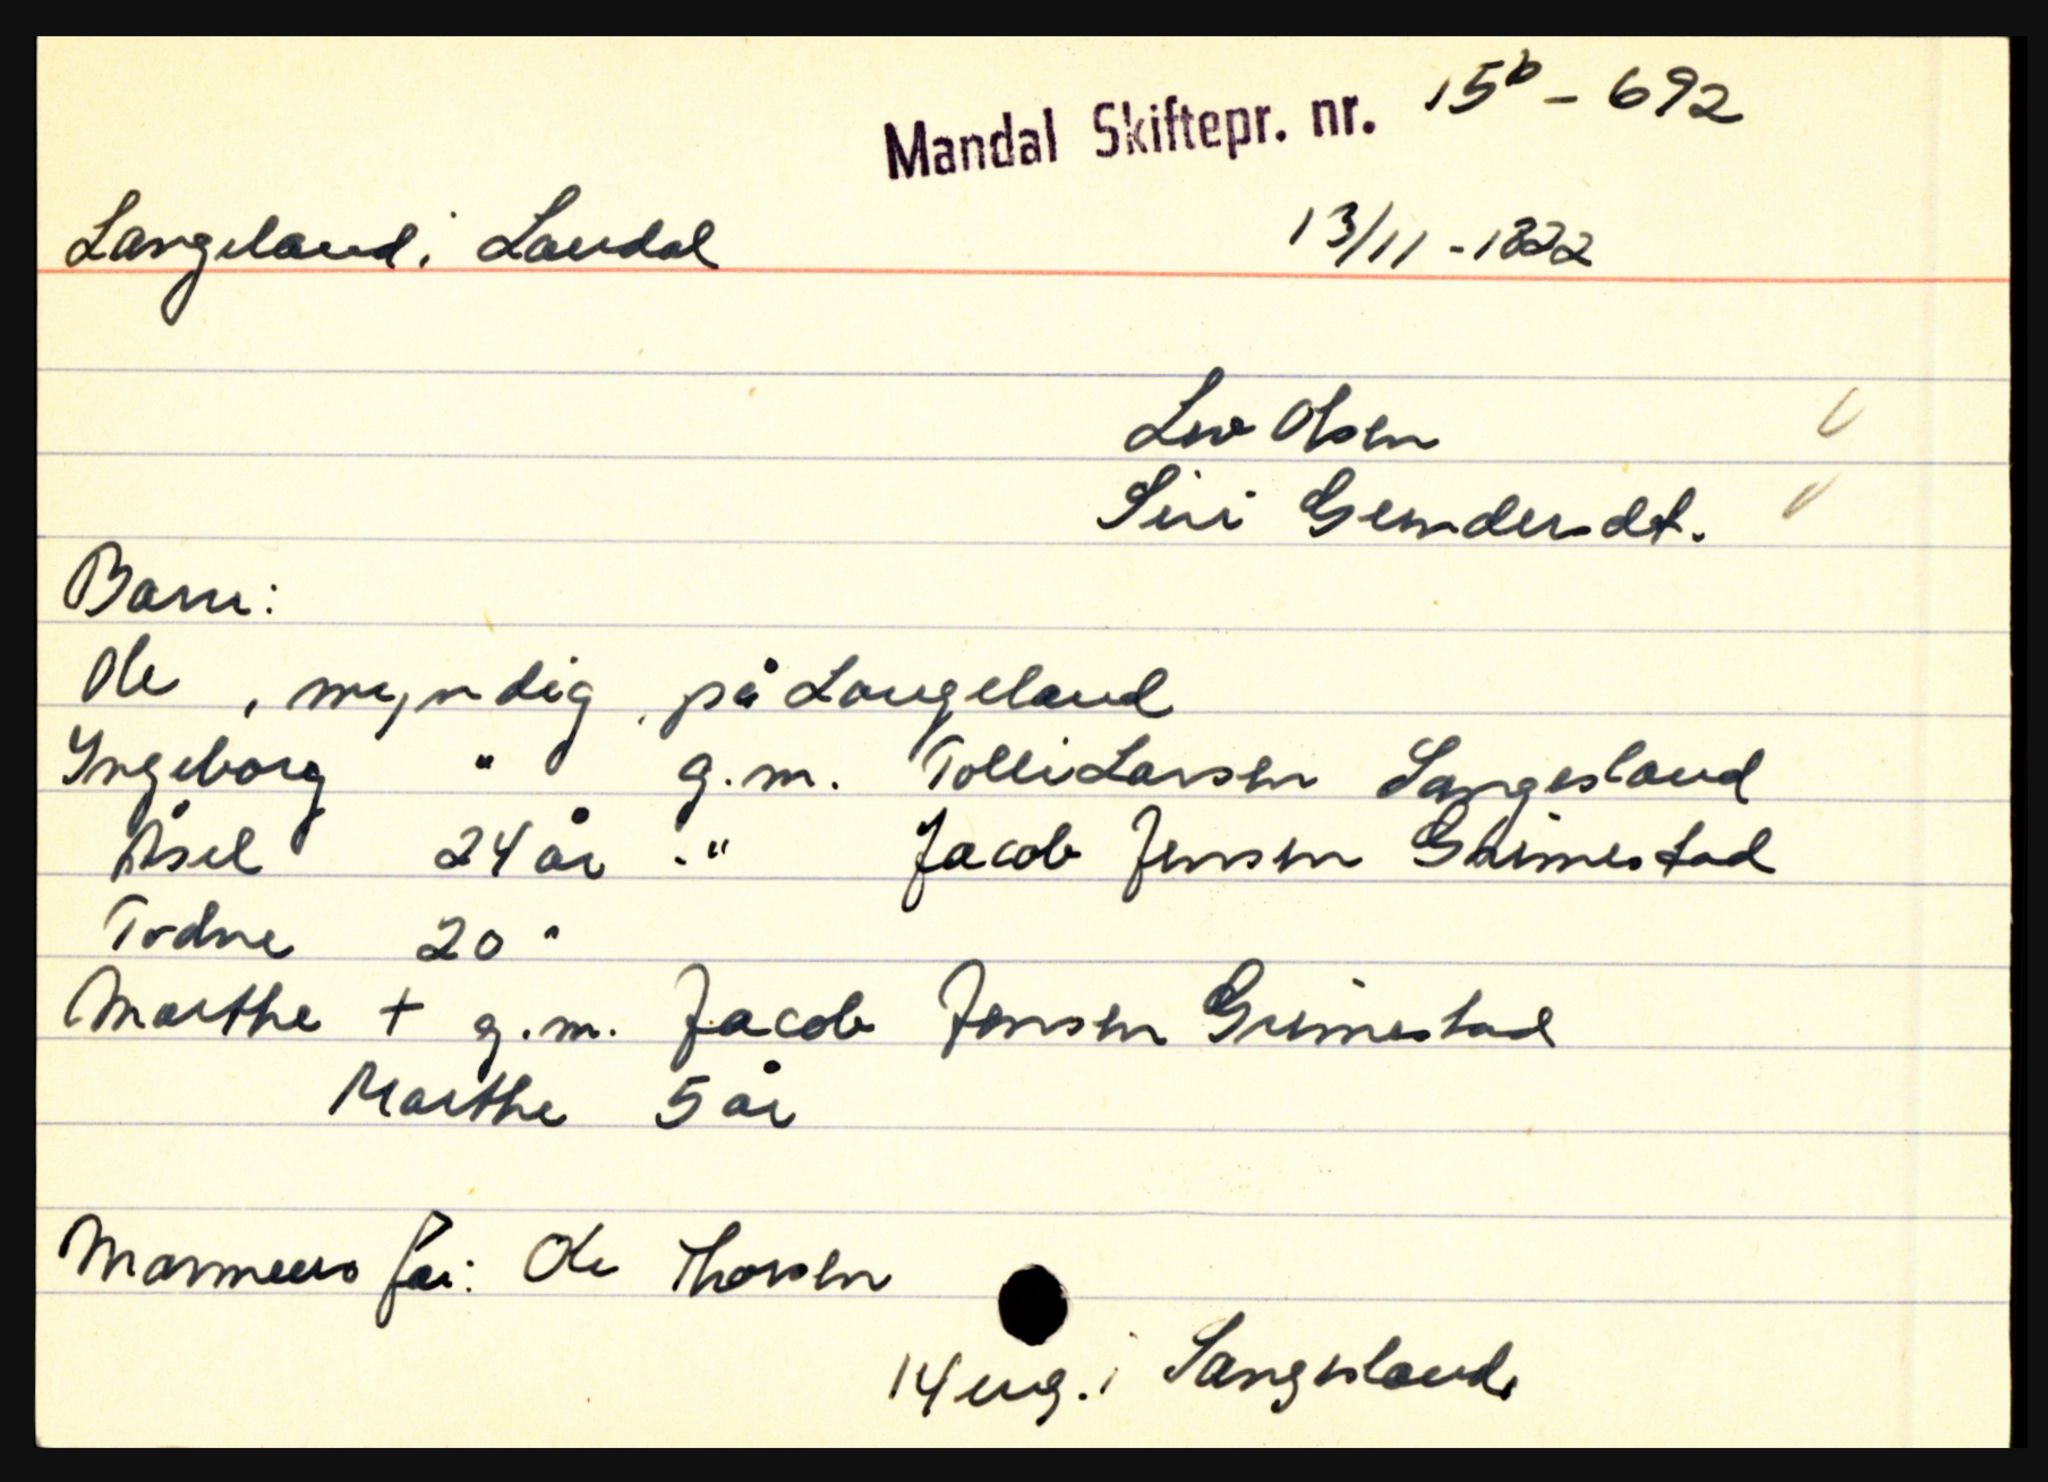 Mandal Skiftepr. nr. 15b - 692
Langeland i Laudal 13/11 - 1822
Siri Gunderdt.
Barn:
Ole , myndig på Langeland
Ingeborg " g.m. Tolli Larsen Sangesland
Åsel 24 år - " Jacob Jensen Grimestad
Todne 20 "
Marthe + g.m. Jacob Jensen Grimestad
Marthe 5 år
Mannens far: Ole Thorsen
14 eng. i Sangesland.